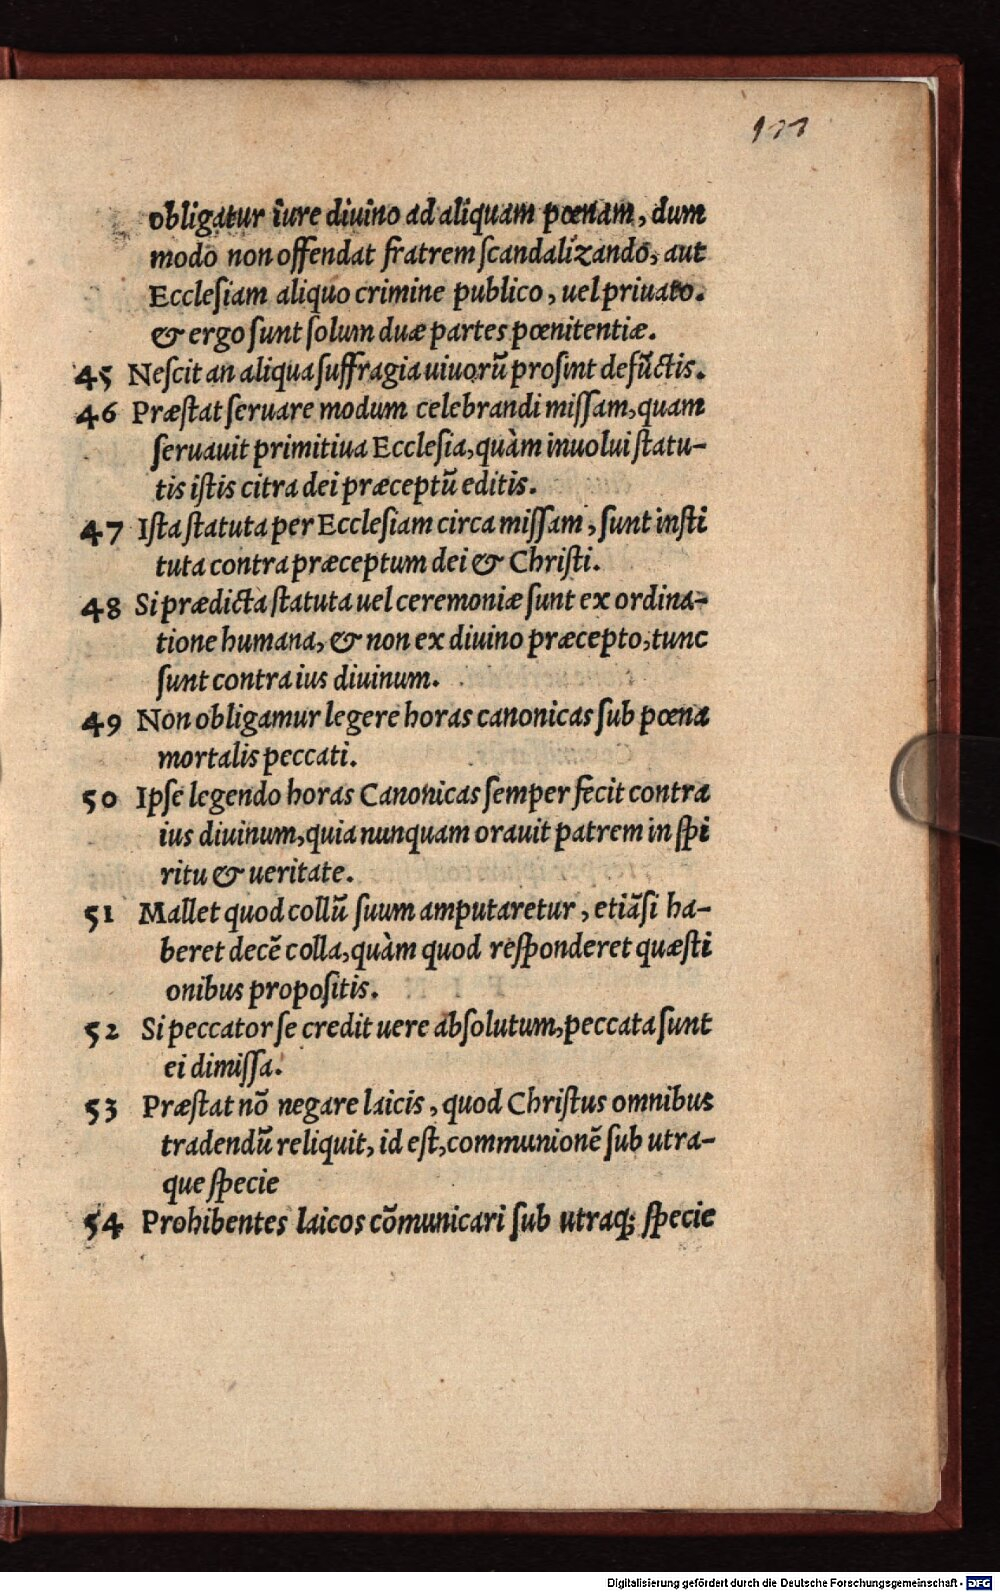 177
obligatur iure diuino ad aliquam pœnam, dum
modo non offendat fratrem scandalizando, aut
Ecclesiam aliquo crimine publico, uel priuato.
& ergo sunt solum duæ partes pœnitentiæ.
45 Nescit an aliqua suffragia uiuorū prosint defūctis.
46 Præstat seruare modum celebrandi missam, quam
seruauit primitiua Ecclesia, quàm inuolui statu-
tis istis citra dei præceptū editis.
47 Ista statuta per Ecclesiam circa missam, sunt insti
tuta contra præceptum dei & Christi.
48 Si prædicta statuta uel ceremoniæ sunt ex ordina-
tione humana, & non ex diuino præcepto, tunc
sunt contra ius diuinum.
49 Non obligamur legere horas canonicas sub pœna
mortalis peccati.
50 Ipse legendo horas Canonicas semper fecit contra
ius diuinum, quia nunquam orauit patrem in spi
ritu & ueritate.
51 Mallet quod collū suum amputaretur, etiāsi ha-
beret decē colla, quàm quod responderet quæsti
onibus propositis.
52 Si peccator se credit uere absolutum, peccata sunt
ei dimissa.
53 Præstat nō negare laicis, quod Christus omnibus
tradendū reliquit, id est, communionē sub utra-
que specie
54 Prohibentes laicos cōmunicari sub utraq; specie
Digitalisierung gefördert durch die Deutsche Forschungsgemeinschaft - DFG